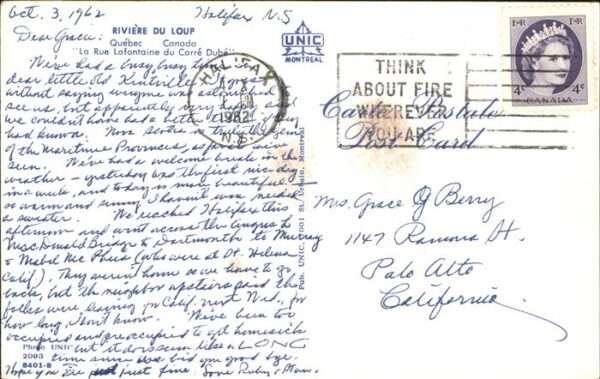 Oct. 3, 1962
Halifax N.S
RIVIÈRE DU LOUP
Québec Canada
"La Rue Lafontaine du Carré Dubé"
UNIC
MONTREAL
Dear Grace:
We've had a busy busy time in
dear little Old Kentville. It goes
without saying everyone was astonished
see us, but apparently very happy and
we couldn't have had a better time if they
had known. Nova Scotia is truly the gem
of the Maritime Provinces, as far as we've
seen. We've had a welcome break in the
weather - yesterday was the first nice day
in a week, and today is more beautiful
so warm and sunny I haven't needed
a sweater. We reached Halifax this
afternoon and went across the Angus L
MacDonald Bridge to Dartmouth to Murray
& Mabel Mc Phees (who were at St. Helena
Calif). They weren't home so we have to go
back, but the neighbor upstairs said the
folks were leaving for Calif. next Wed., for
how long, I don't know. We've been too
occupied and preoccupied to get homesick
but it does seem like a LONG
time since we bid you good bye.
Hope you are just fine. Love Ruby,
Photo UNIC
2093
8401-B
Pub. UNIC, St. Denis, Montreal
HALIFAX
1962
N.S.
THINK
ABOUT FIRE
WHEREVER
YOU ARE
Carte Postale
Post Card
4¢ 4¢
CANADA
Mrs. Grace G Berry
1147 Ramona St.
Palo Alto
California